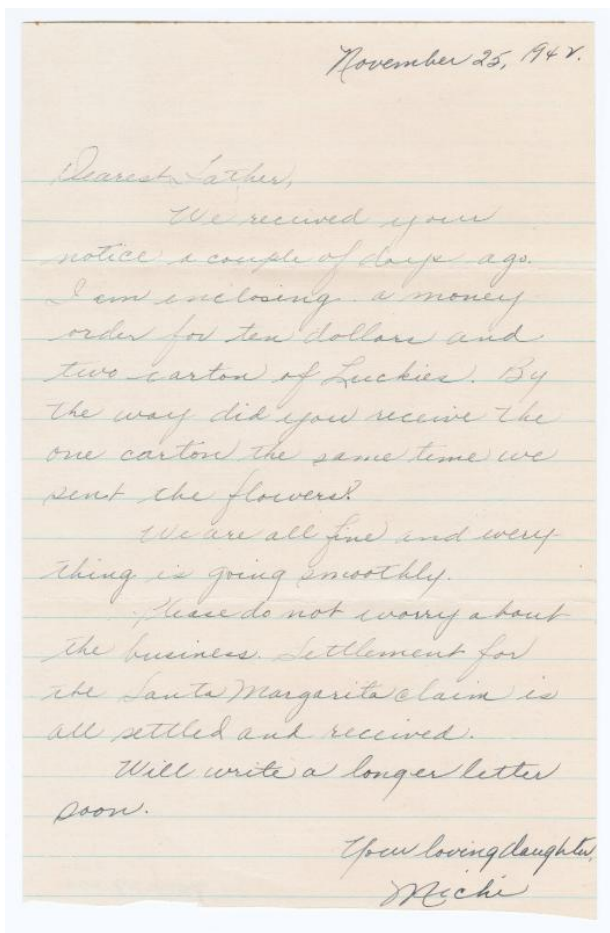 November 25, 1942.
Dearest Father,
We received your
notice a couple of days ago.
I am enclosing a money
order for ten dollars and
two carton of Luckies. By
the way did you receive the
one carton the same time we
sent the flowers?
We are all fine and every-
thing is going smoothly.
Please do not worry about
the business. Settlement for
the Santa Margarita claim is
all settled and received.
Will write a longer letter
soon.
Your loving daughter,
Michi